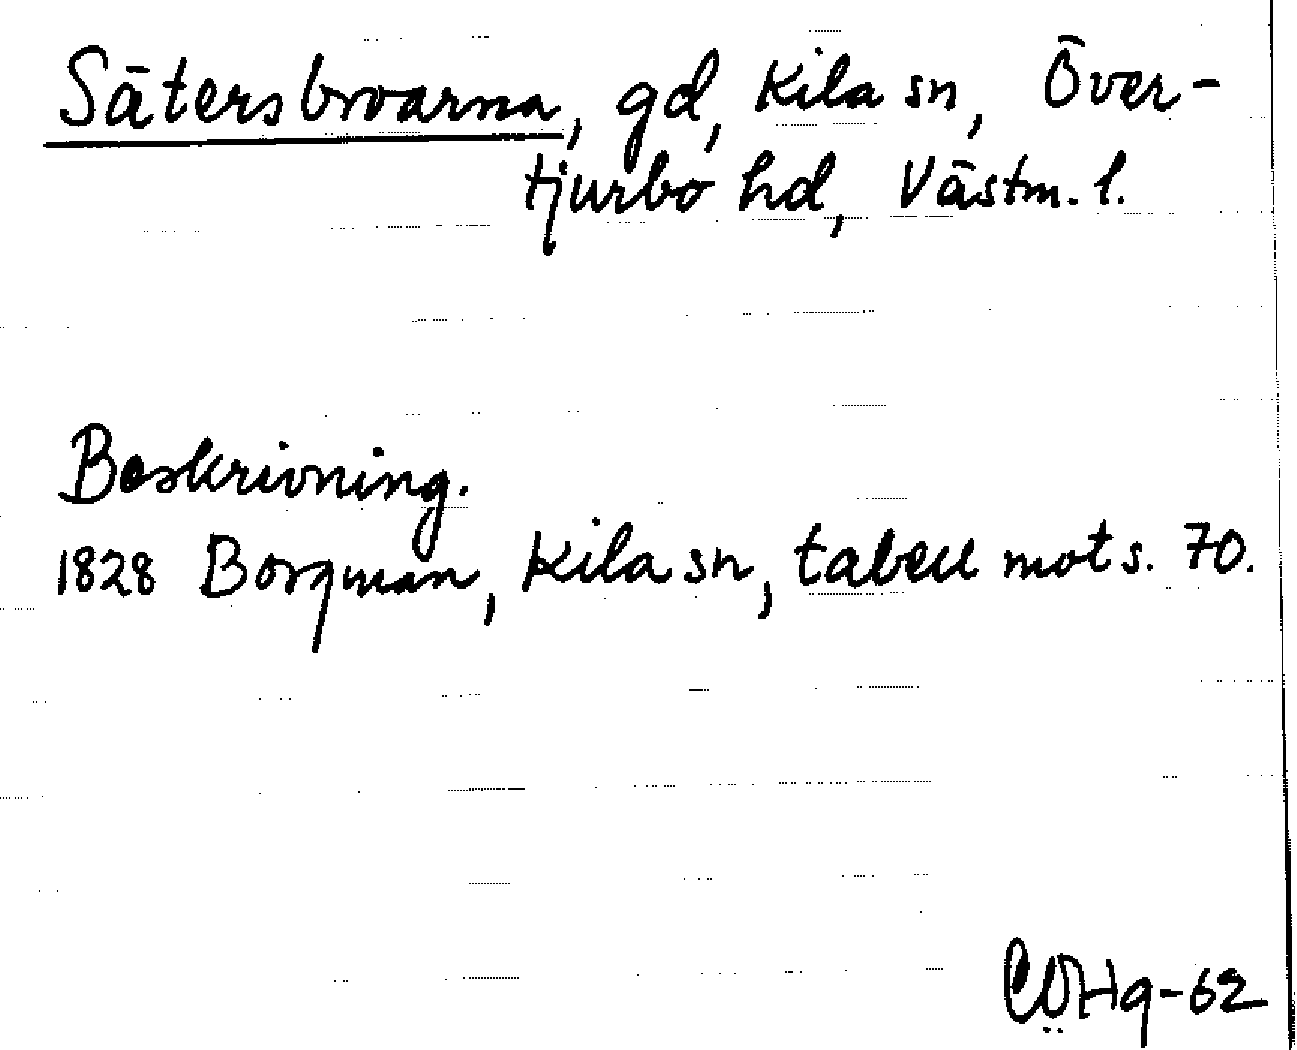 Sätersbroarna, gd, Kila sn, Över-
tjurbo hd, Västm. l.
Beskrivning.
1828 Borgman, Kila sn, tabell mot s. 70.